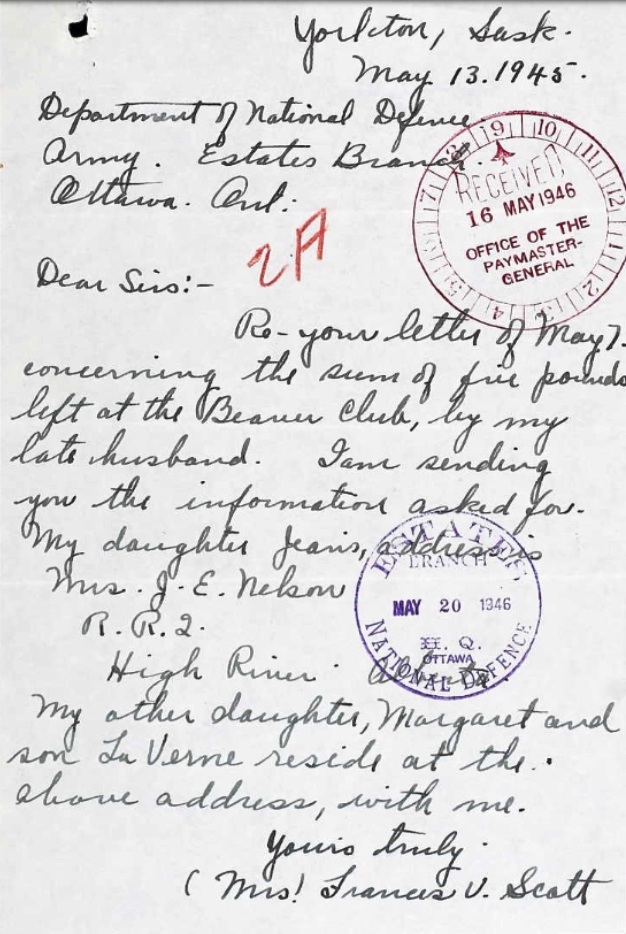 Yorkton, Sask.
May 13. 1945.
Department of National Defence
Army. Estates Branch.
Ottawa. Ont:
RECEIVED
16 MAY 1946
OFFICE OF THE
PAYMASTER-
GENERAL
2A
Dear Sirs:-
Re-your letter of May 7.
concerning the sum of five pounds
left at the Beaver Club, by my
late husband. I am sending
you the information asked for.
My daughter Jeans, address is
Mrs. J. E. Nelson
R. R. 2.
High River. Alberta
ESTATES
BRANCH
MAY 20 1946
H. Q.
OTTAWA
NATIONAL DEFENCE
My other daughter, Margaret and
son La Verne reside at the.
above address, with me.
Yours truly.
(Mrs) Frances V. Scott